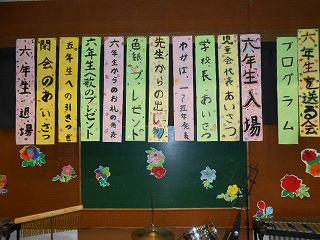 六年生を送る会
プログラム
六年生入場
児童会代表あいさつ
学校長あいさつ
わかば、一~五年発表
先生からの出し物
色紙プレゼント
六年生からのお礼の発表
六年生へ歌のプレゼント
五年生への引きつぎ
閉会のあいさつ
六年生退場